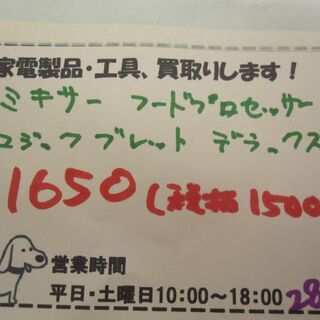 家電製品・工具、買取りします！
ミキサー フードプロセッサー
マジックブレット デラックス
1650(税抜1500
営業時間
平日・土曜日10:00～18:00
28